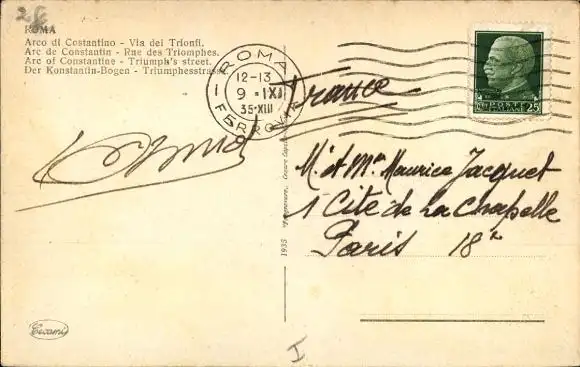 28
ROMA
Arco di Costantino - Via dei Trionfi.
Arc de Constantin - Rue des Triomphes.
Arc of Constantine - Triumph's street.
Der Konstantin-Bogen - Triumphesstrasse
ROMA
12-13
9 - IX
35·XIII
FERROVIA
POSTE
ITALIANE
25
France
M. et Me Maurice Jacquet
1 Cité de La Chapelle
Paris 18e
1935
Cecami
I